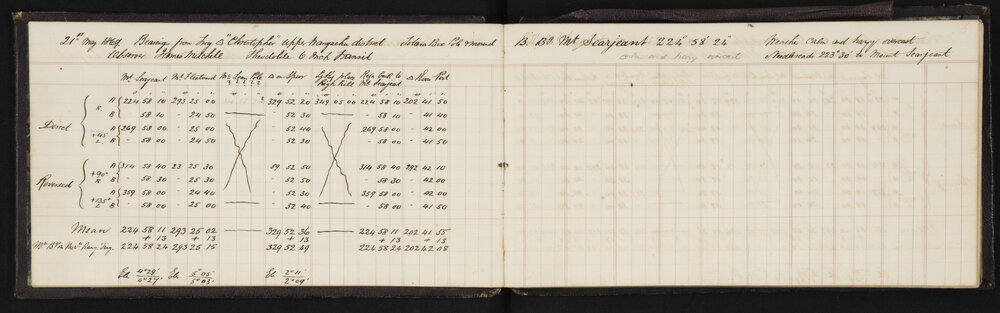 21st May 1869. Bearings from Trig △ "Christopher" Upper district Box Pole & mound B. Bg. Mt. Searjeant 224° 58' 24" Weather Calm and hazy overcast
Observer James Mitchell Theodolite 6 Inch Transit calm and hazy overcast Needle reads 223° 30' to Mount Searjeant
Mt Searjeant Mt △ on Spur High Hill Rep. back to Mt Searjeant △ Post
Direct R. A 224 58 10 293 25 00 329 52 20 349 05 00 224 58 10 202 41 50
B - 58 10 - 24 50 - 52 30 - 58 10 - 41 40
+45° L. A 269 58 00 - 25 00 - 52 40 269 58 00 - 42 00
B - 58 00 - 24 50 - 52 30 - 58 00 - 41 50
Reversed +90° R A 314 58 40 23 25 30 59 52 50 314 58 40 292 42 10
B - 58 30 - 25 30 - 52 30 - 58 30 - 42 00
+135° L A 359 58 00 - 24 40 - 52 30 359 58 00 - 42 00
B - 58 00 - 25 00 - 52 40 - 58 00 - 41 50
Mean 224 58 11 293 25 02 329 52 36 224 58 11 202 41 55
+ 13 + 13 + 13 + 13 + 13
224 58 24 293 25 15 329 52 49 224 58 24 202 42 08
Ele 4° 29' Ele 5° 05' Ele 2° 11'
4° 27' 5° 03' 2° 09'